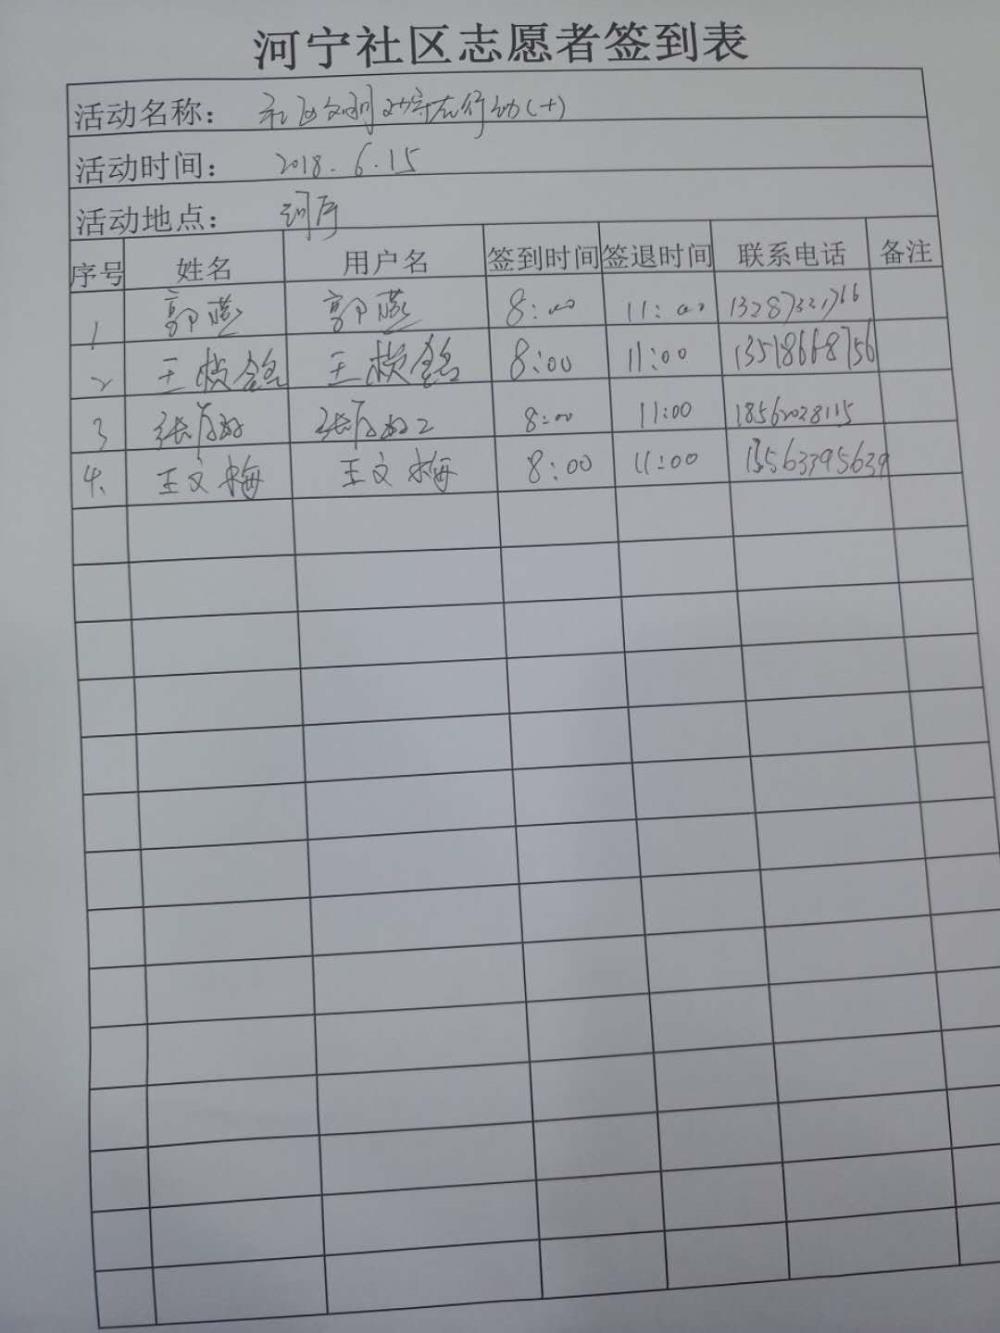 河宁社区志愿者签到表
活动名称： 社区文明 行动(十)
活动时间： 2018.6.15
活动地点： 河宁
序号 姓名 用户名 签到时间 签退时间 联系电话 备注
1 郭燕 郭燕 8:00 11:00 13287321766
2 王桢铭 王桢铭 8:00 11:00 13518668756
3 张 8:00 11:00 18562028115
4. 王文梅 王文梅 8:00 11:00 13563395639